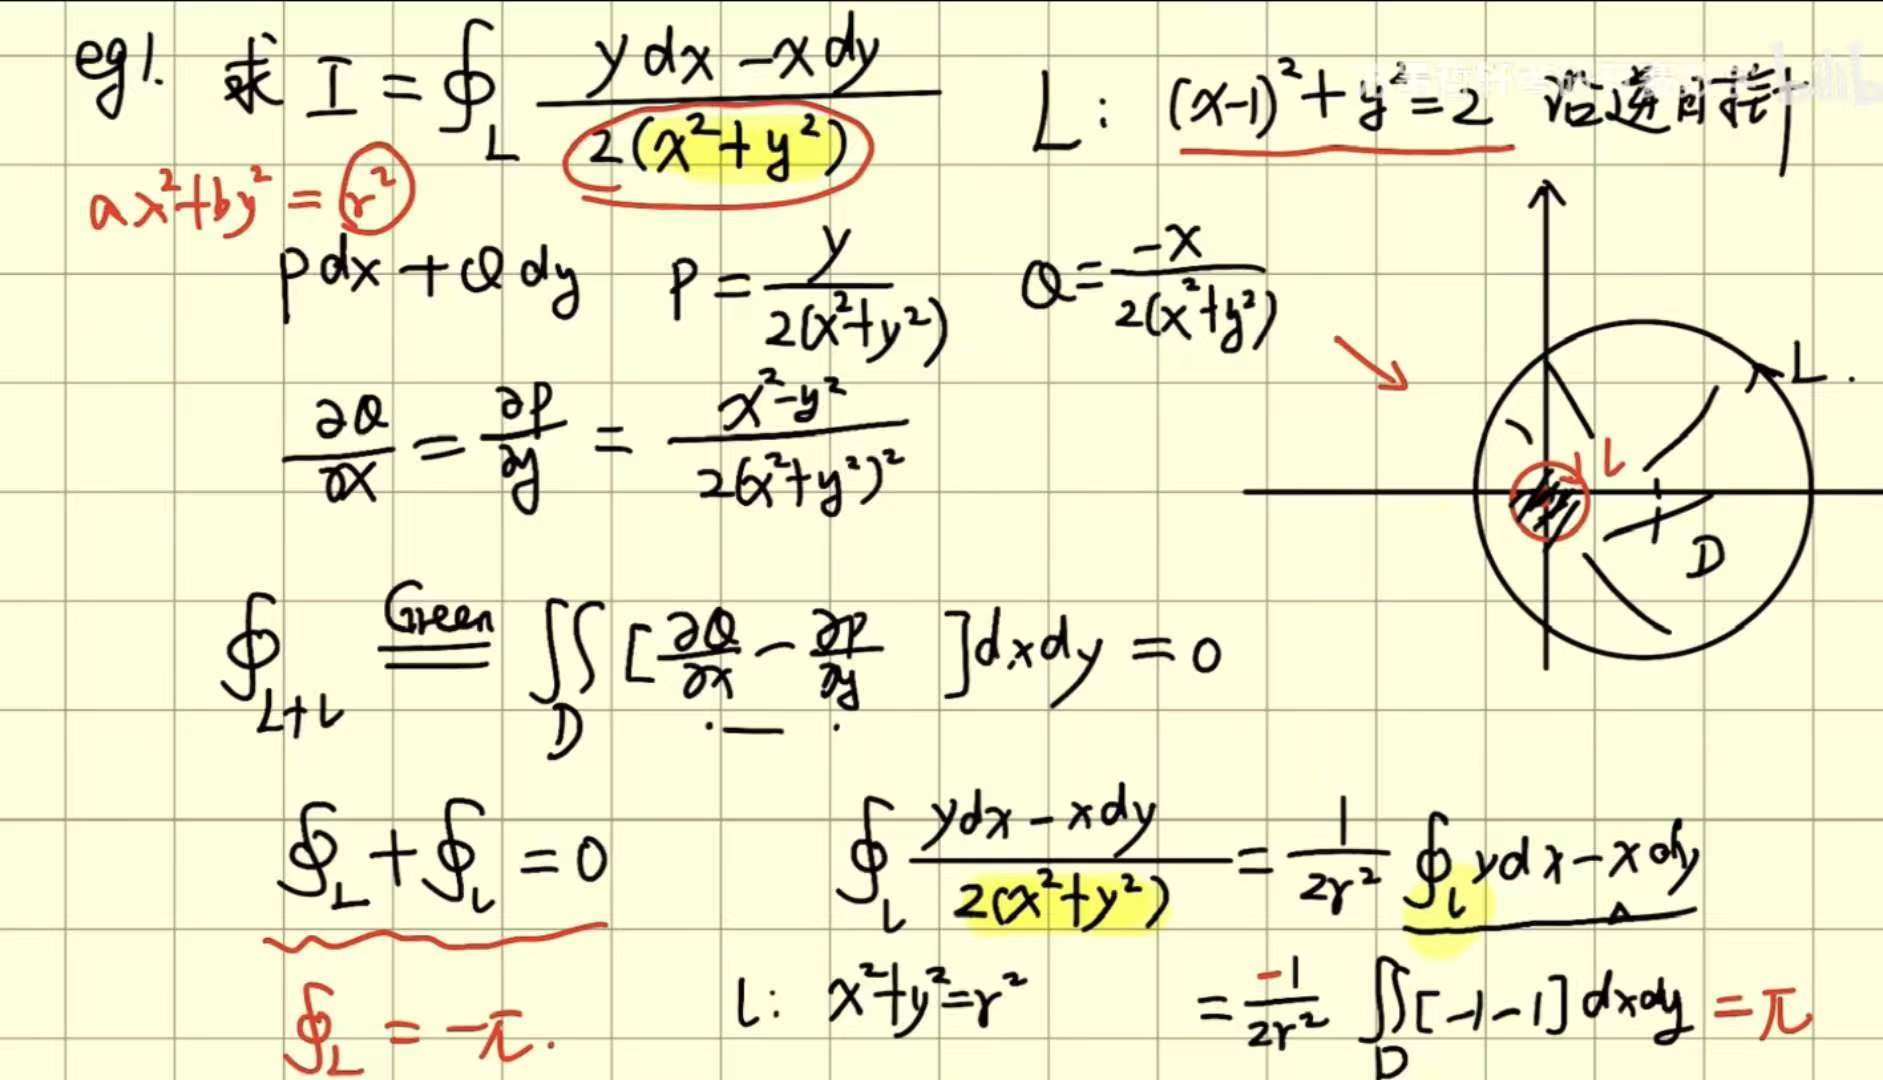 eg1. 求 I = ∮_L (ydx - xdy) / (2(x²+y²))  L: (x-1)²+y²=2 沿逆时针
ax²+by² = r²
Pdx + Qdy  P = y / (2(x²+y²))  Q = -x / (2(x²+y²))
∂Q/∂x = ∂P/∂y = (x²-y²) / (2(x²+y²)²)
L.
l
D
∮_{L+l} Green ∬_D [∂Q/∂x - ∂P/∂y]dxdy = 0
∮_L + ∮_l = 0  ∮_l (ydx - xdy) / (2(x²+y²)) = 1/(2r²) ∮_l ydx - xdy
∮_L = -π.  l: x²+y²=r²  = -1/(2r²) ∬_D [-1-1]dxdy = π